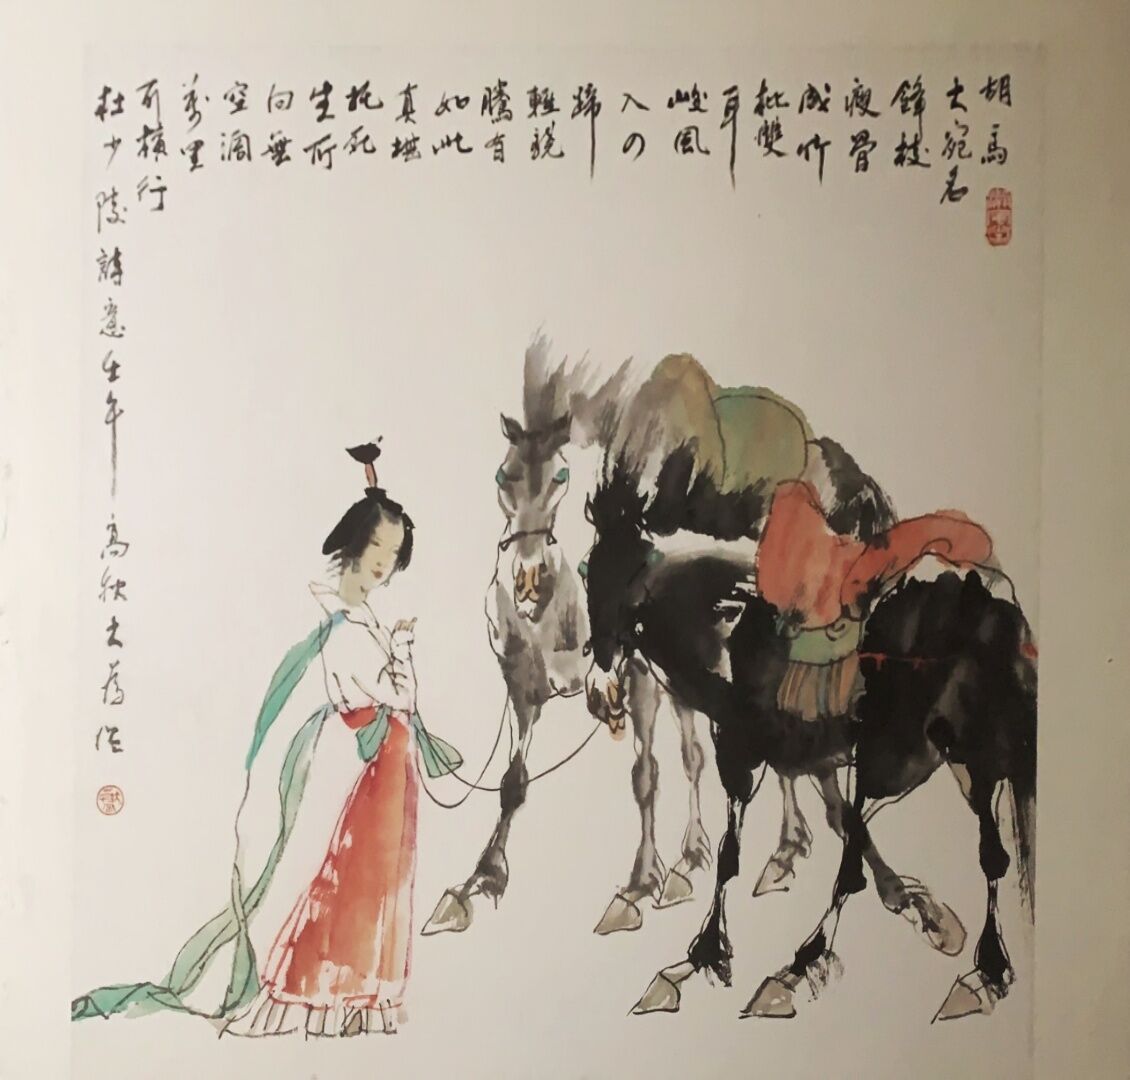 胡馬
大宛名
鋒棱
瘦骨
成竹
批雙
耳
峻風
入四
蹄
輕驍
騰有
如此
真堪
托死
生所
向無
空濶
萬里
可横行
杜少陵詩意壬午高秋大為作